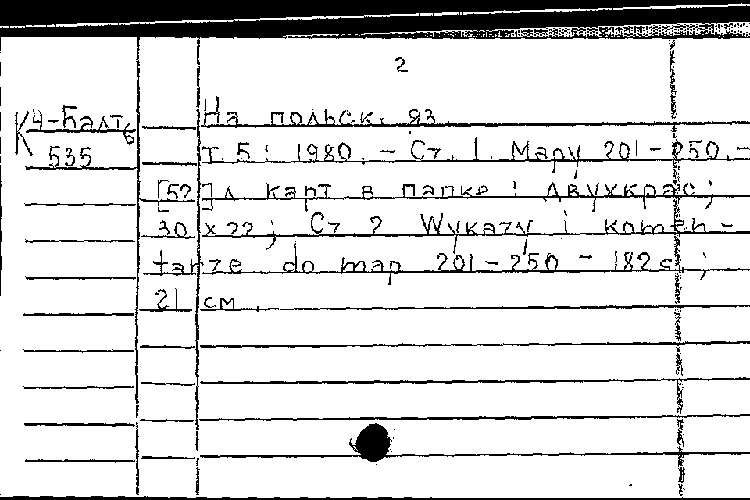 2
К4-Балт6 На польск. яз.
535 т. 5: 1980. - Cz. 1. Mapy 201-250. -
[52] л карт в папке : двухкрас;
30 x 22 ; Cz 2 Wykazy i komen-
tarze do map 201-250 - 182 с. ;
21 см.